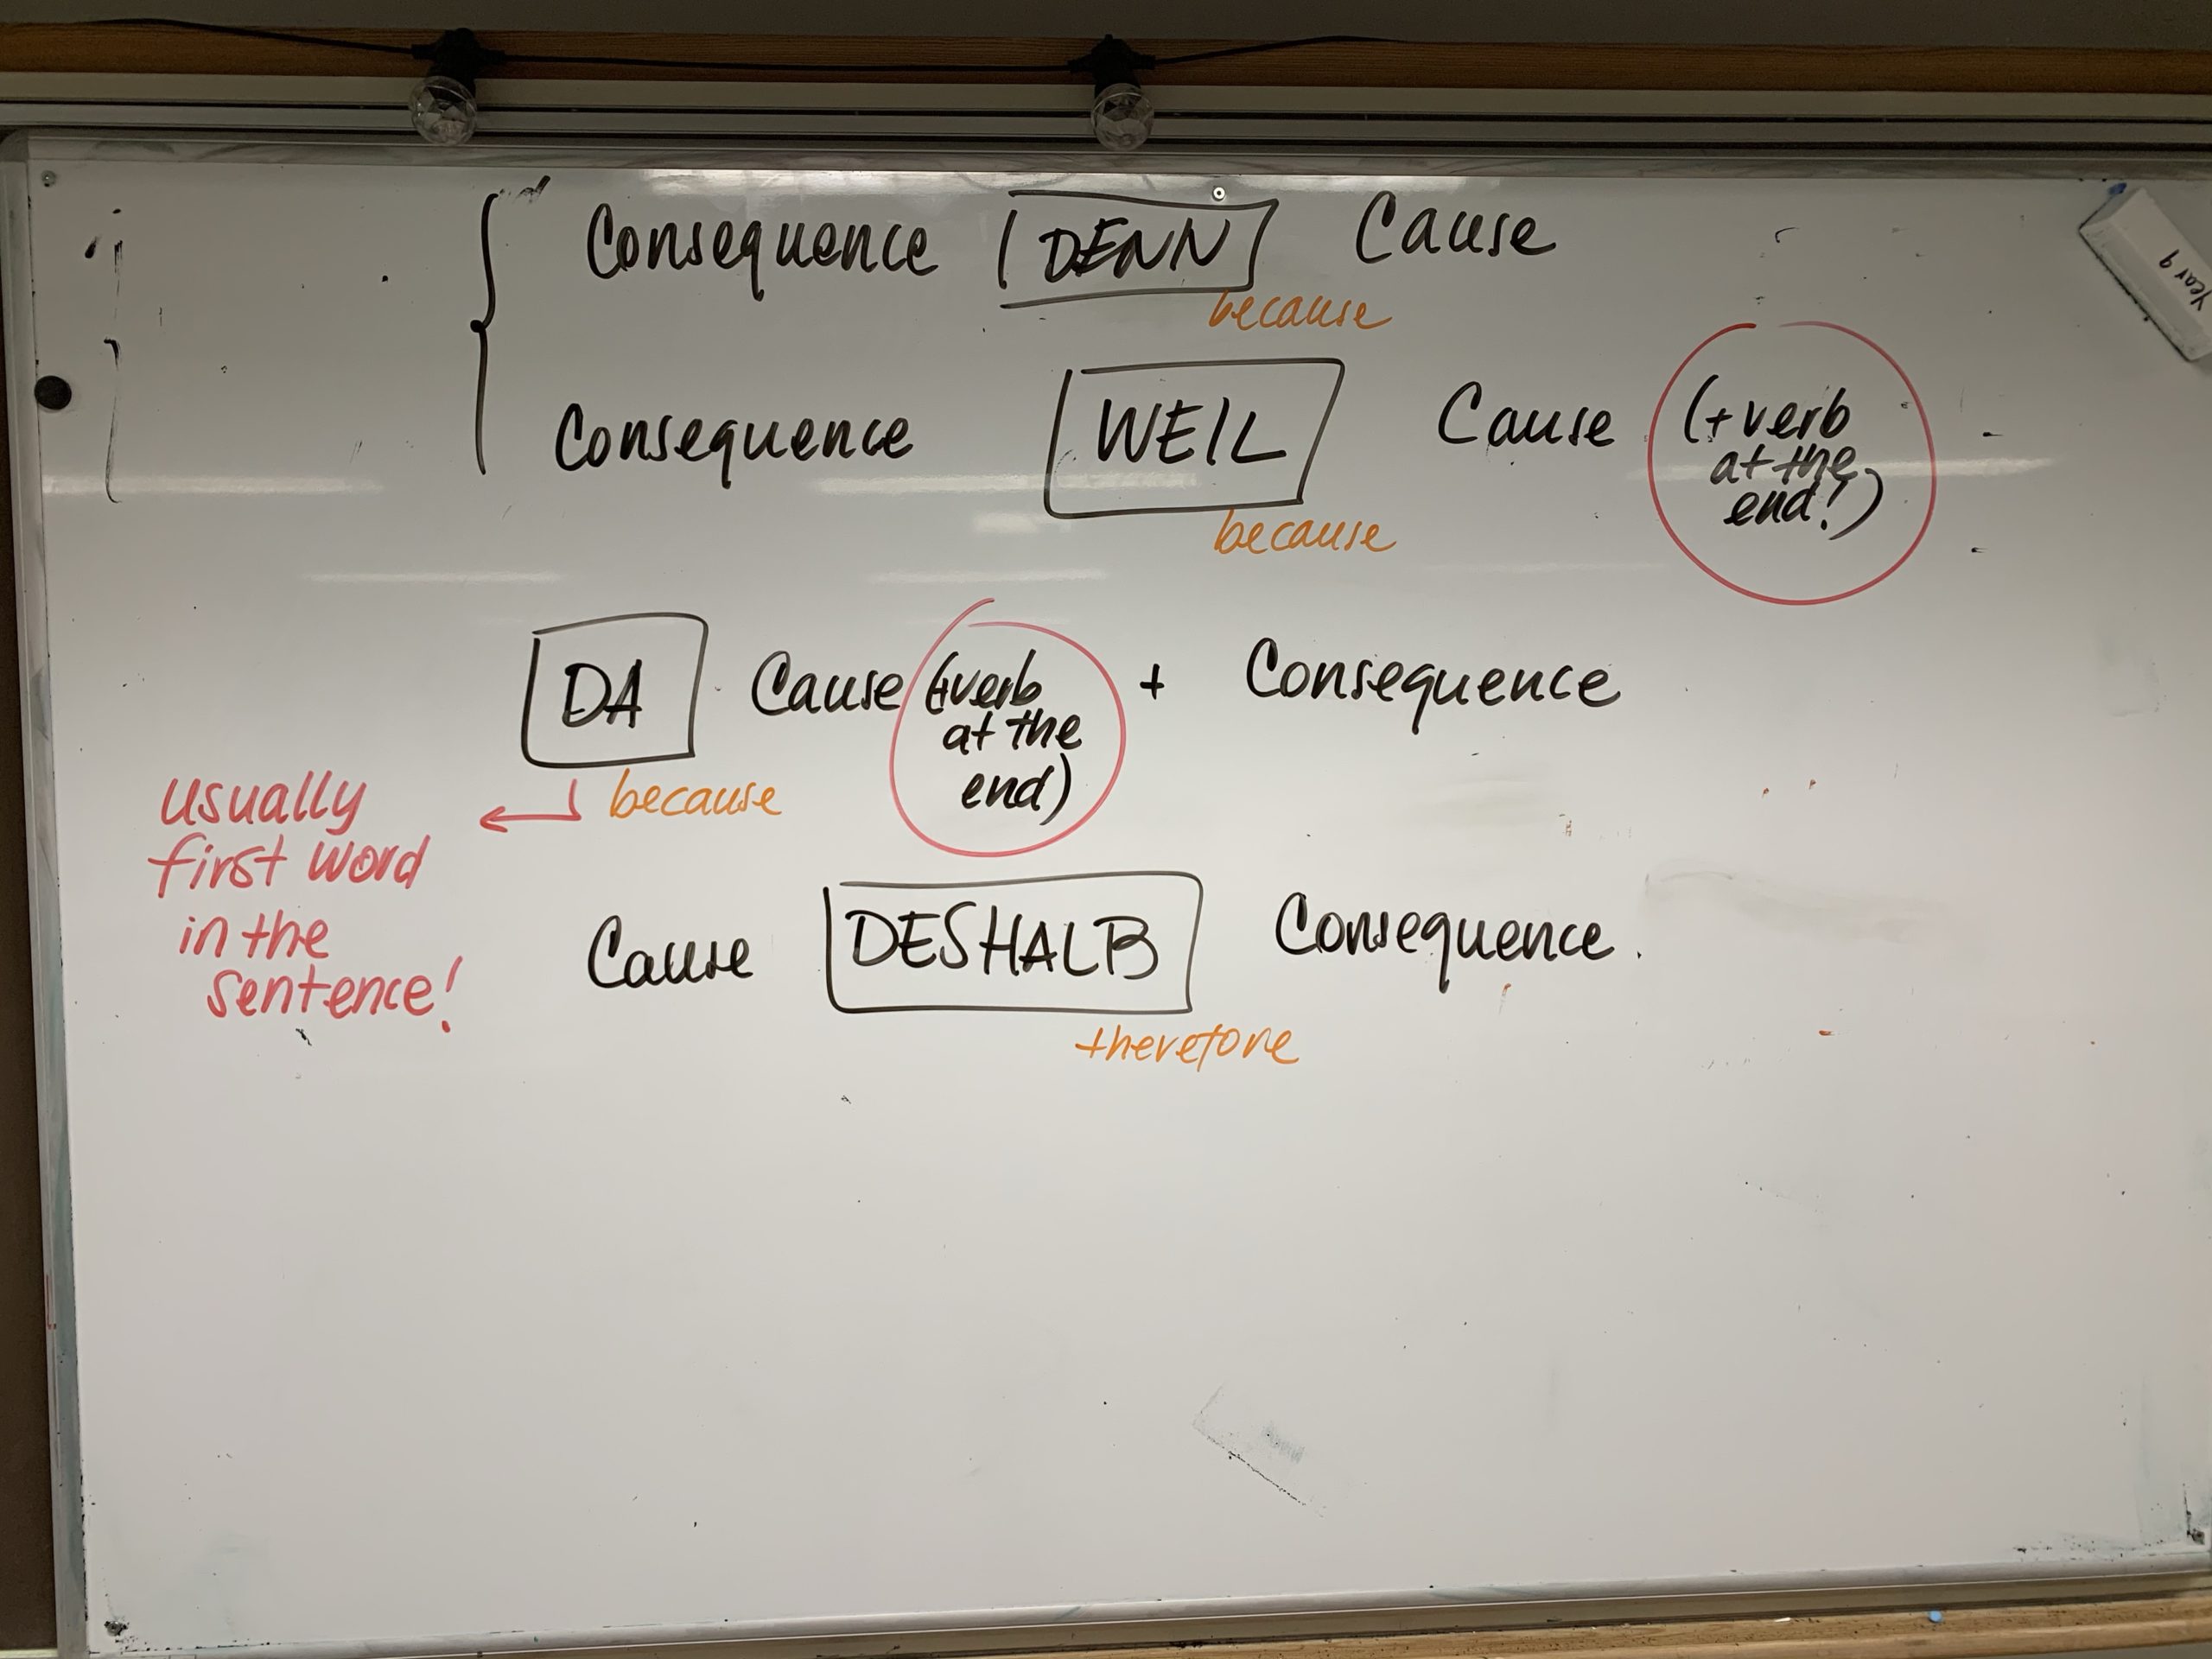 Consequence DENN Cause
because
Consequence WEIL Cause (+verb
at the
end!)
because
DA Cause (+verb + Consequence
at the
end)
because
usually
first word
in the
sentence!
Cause DESHALB Consequence.
therefore
Year 9